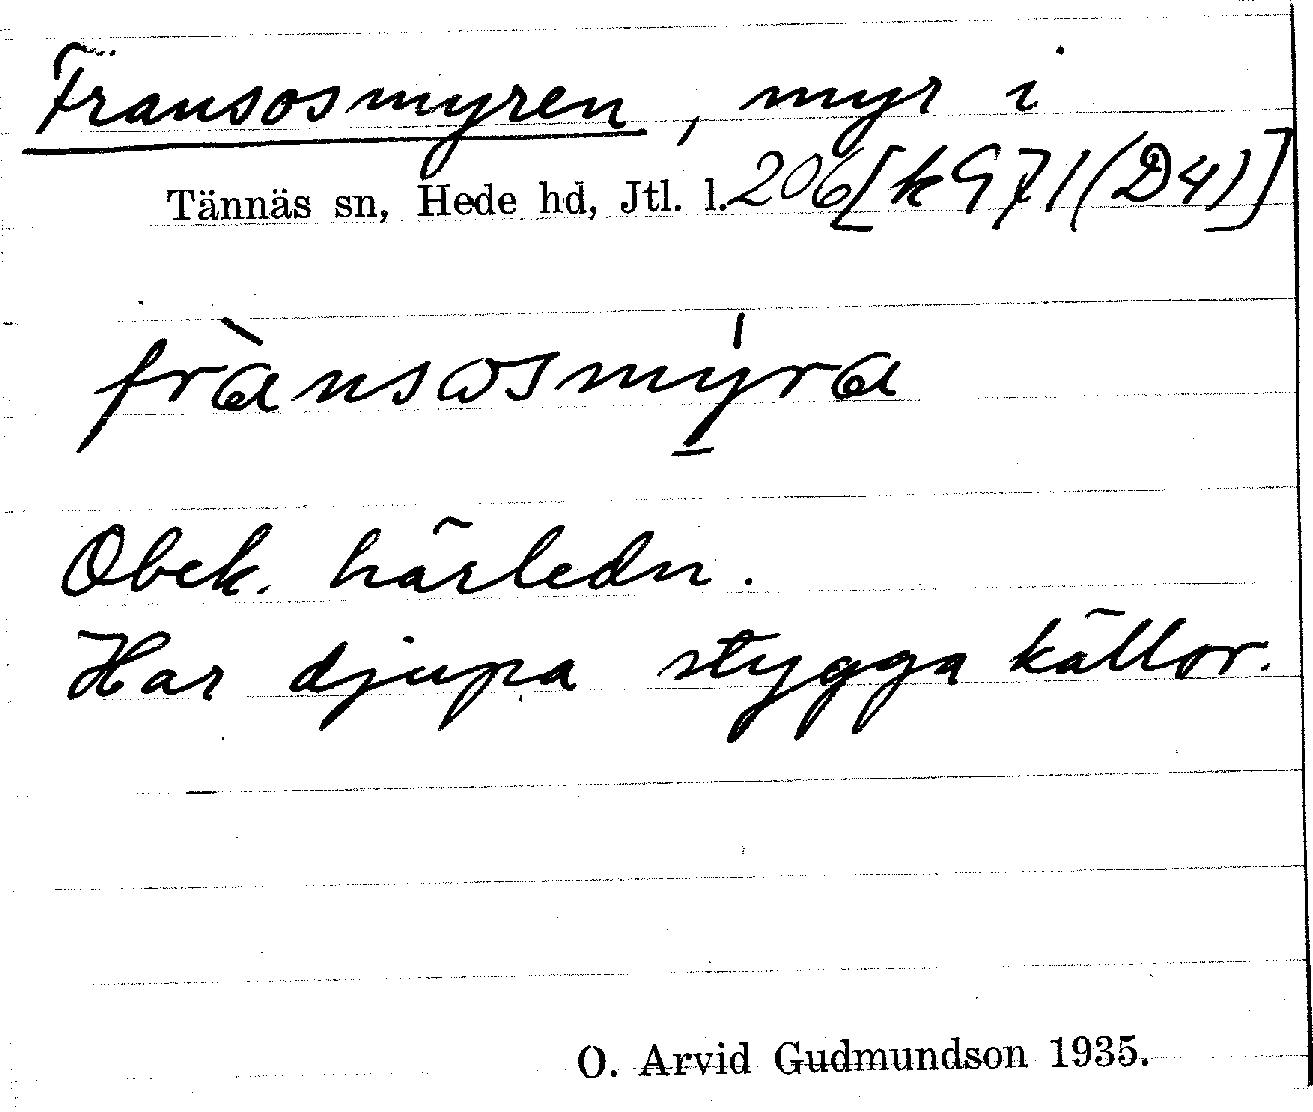 Fransosmyren, myr i
Tännäs sn, Hede hd, Jtl. l. 206 [k971(D4)]
frànsosmy̲̍ra
Obek. härledn.
Har djupa stygga källor.
O. Arvid Gudmundson 1935.